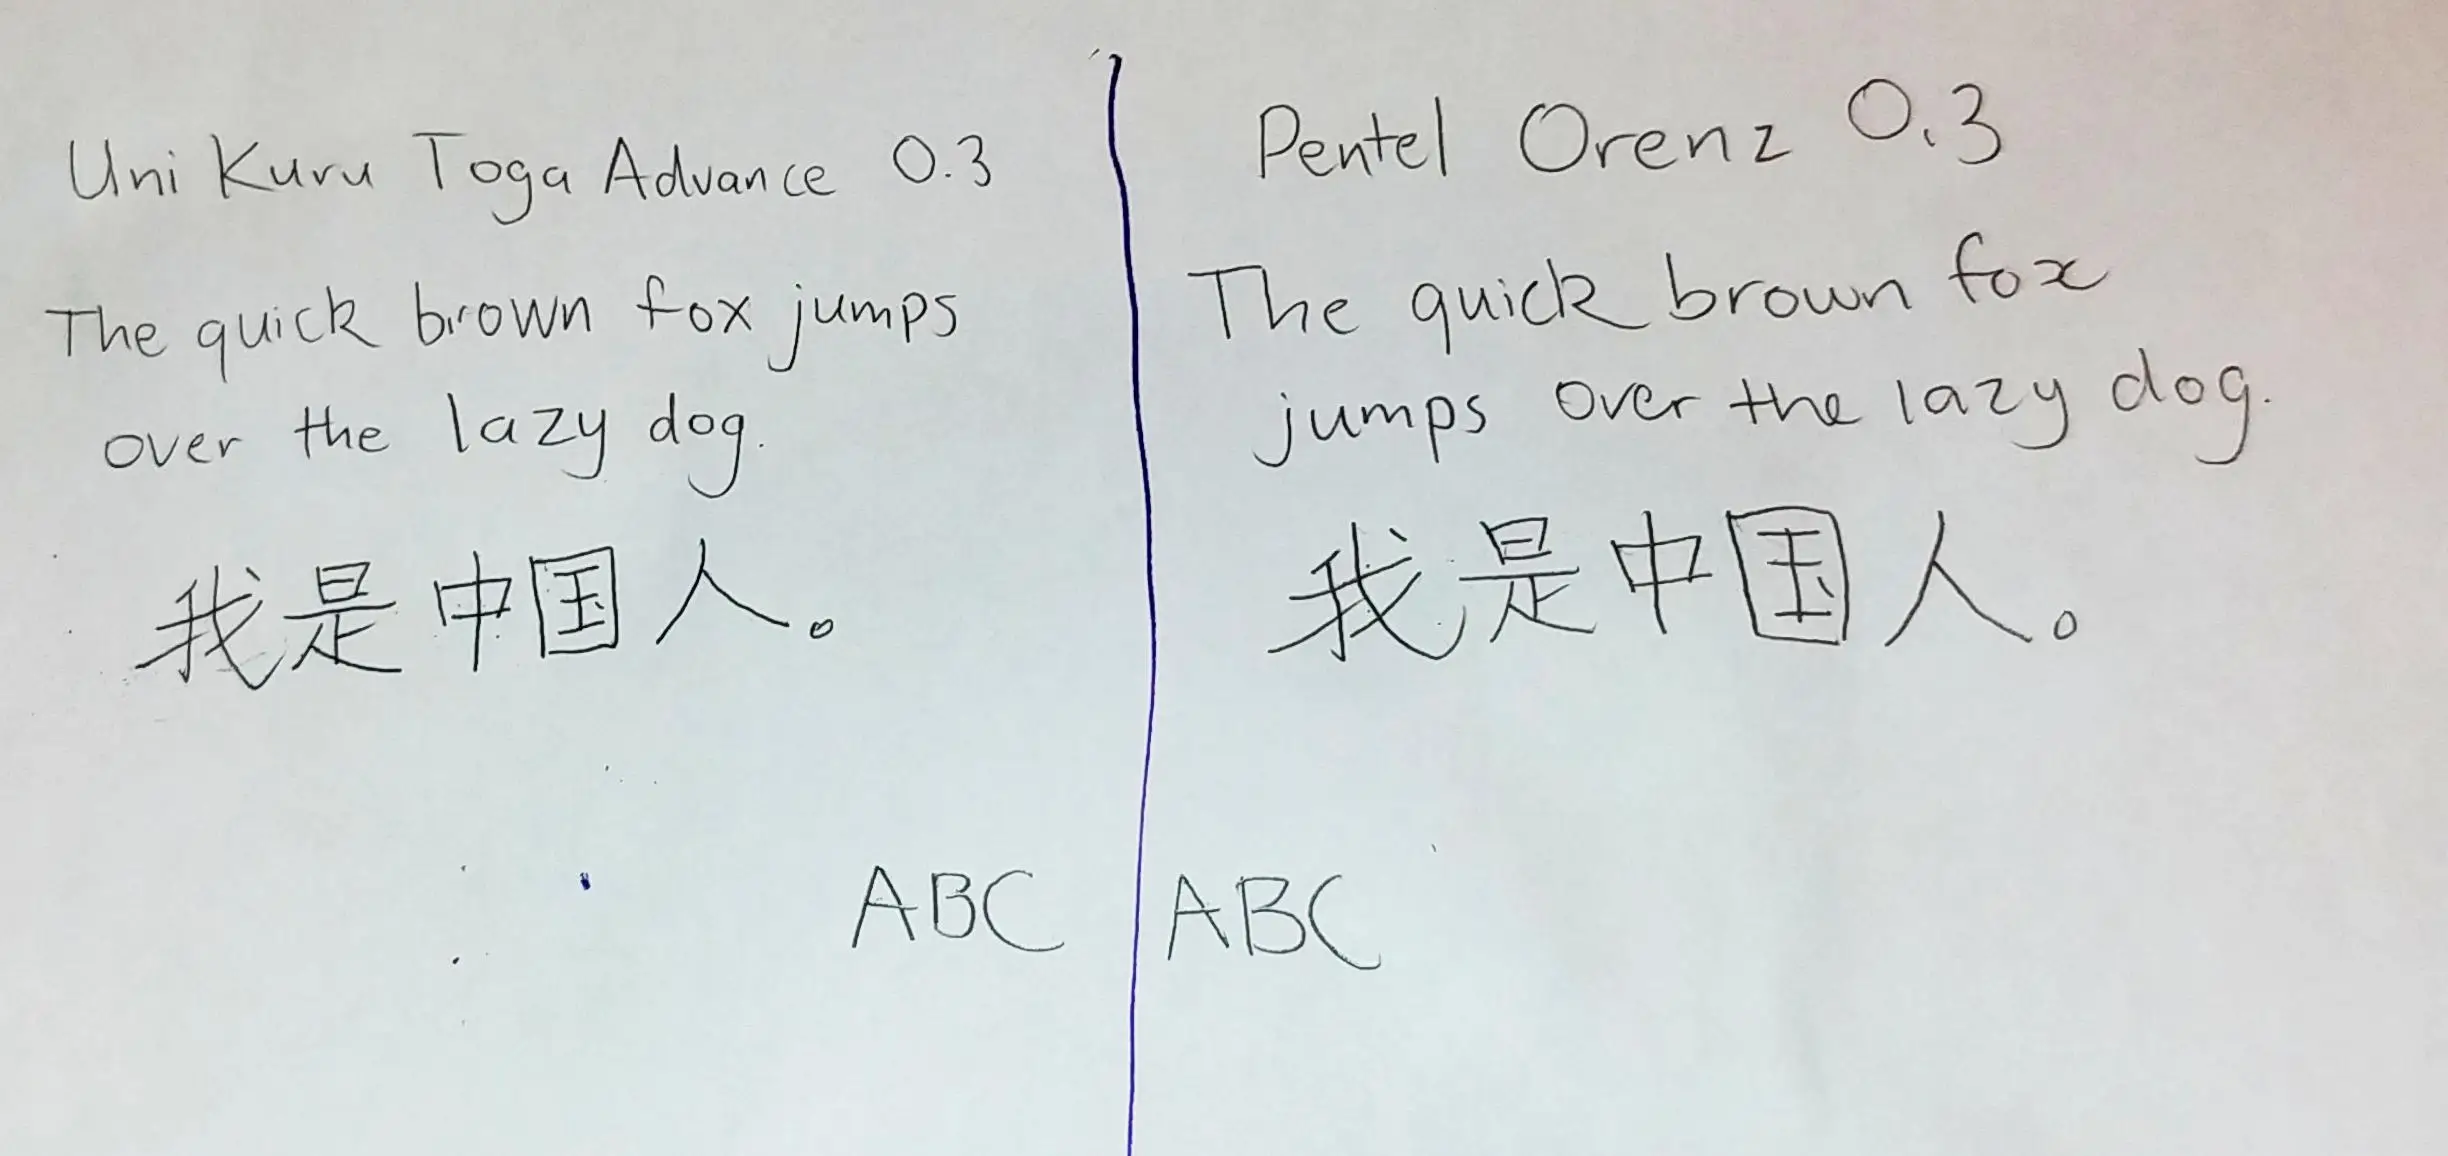 Uni Kuru Toga Advance 0.3
The quick brown fox jumps
over the lazy dog.
我是中国人。
ABC
Pentel Orenz 0.3
The quick brown fox
jumps over the lazy dog.
我是中国人。
ABC